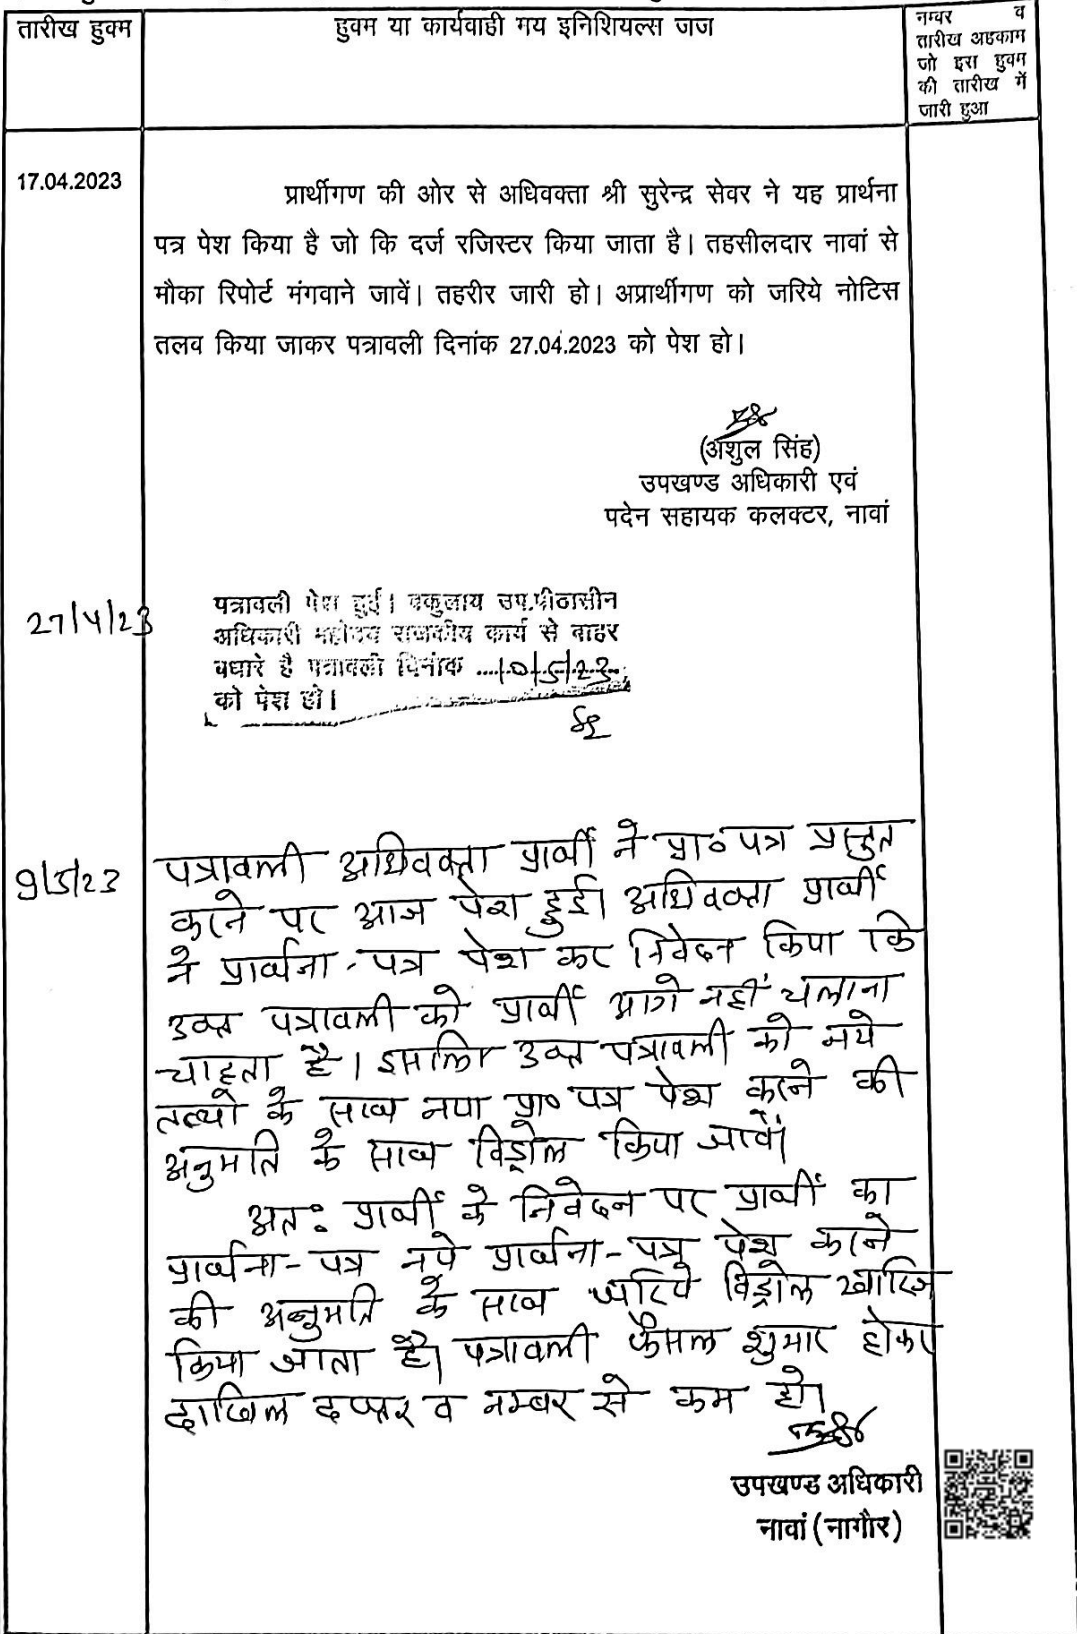 तारीख हुक्म
हुक्म या कार्यवाही मय इनिशियल्स जज
नम्बर व
तारीख अहकाम
जो इस हुक्म
की तारीख में
जारी हुआ
17.04.2023
प्रार्थीगण की ओर से अधिवक्ता श्री सुरेन्द्र सेवर ने यह प्रार्थना
पत्र पेश किया है जो कि दर्ज रजिस्टर किया जाता है। तहसीलदार नावां से
मौका रिपोर्ट मंगवाने जावें। तहरीर जारी हो। अप्रार्थीगण को जरिये नोटिस
तलब किया जाकर पत्रावली दिनांक 27.04.2023 को पेश हो।
(अंशुल सिंह)
उपखण्ड अधिकारी एवं
पदेन सहायक कलक्टर, नावां
27/4/23
पत्रावली पेश हुई। वकुलाय उप.पीठासीन
अधिकारी महोदय राजकीय कार्य से बाहर
पधारे है पत्रावली दिनांक 10/5/23
को पेश हो।
9/5/23
पत्रावली अधिवक्ता प्रार्थी ने प्रा० पत्र प्रस्तुत
करने पर आज पेश हुई। अधिवक्ता प्रार्थी
ने प्रार्थना-पत्र पेश कर निवेदन किया कि
उक्त पत्रावली को प्रार्थी आगे नहीं चलाना
चाहता है। इसलिए उक्त पत्रावली को नये
तथ्यों के साथ नया प्रा० पत्र पेश करने की
अनुमति के साथ विड्रोल किया जावें।
अतः प्रार्थी के निवेदन पर प्रार्थी का
प्रार्थना-पत्र नये प्रार्थना-पत्र पेश करने
की अनुमति के साथ जरिये विड्रोल खारिज
किया जाता है। पत्रावली फैसल शुमार होकर
दाखिल दफ्तर व नम्बर से कम हो।
उपखण्ड अधिकारी
नावां (नागौर)